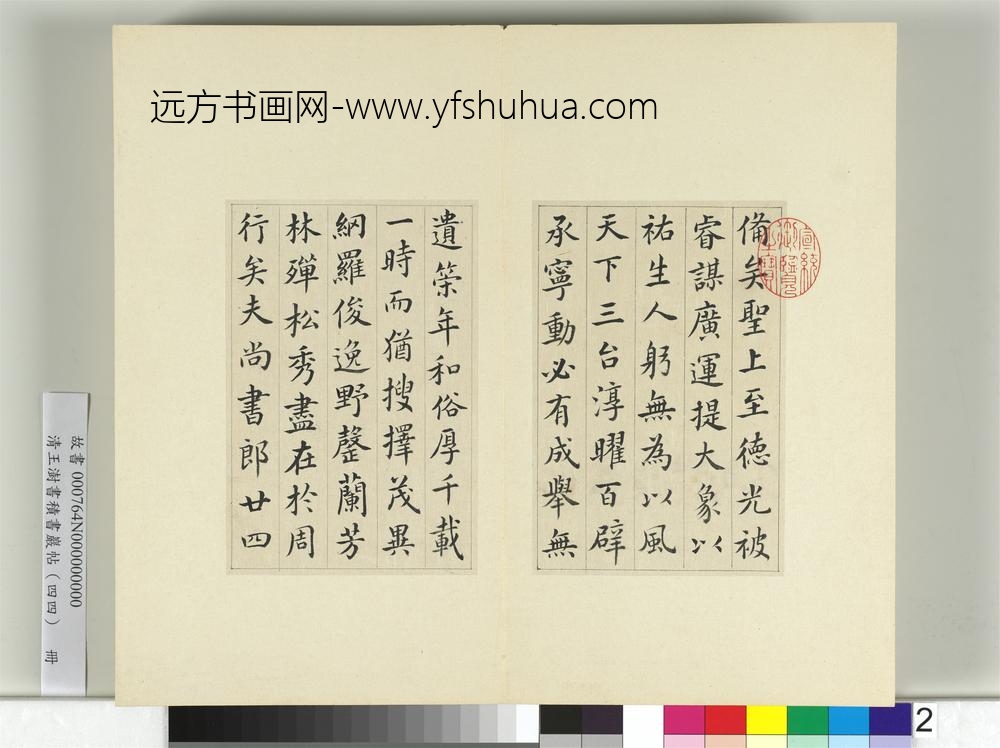 远方书画网-www.yfshuhua.com
備矣聖上至德光被
睿謀廣運提大象以
祐生人躬無為以風
天下三台淳曜百辟
承寧動必有成舉無
遺筞年和俗厚千載
一時而猶搜擇茂異
網羅俊逸野罄蘭芳
林殫松秀盡在於周
行矣夫尚書郎廿四
宣統御覽之寶
故書 000764N000000000
清王澍書積書巖帖(四四) 冊
2